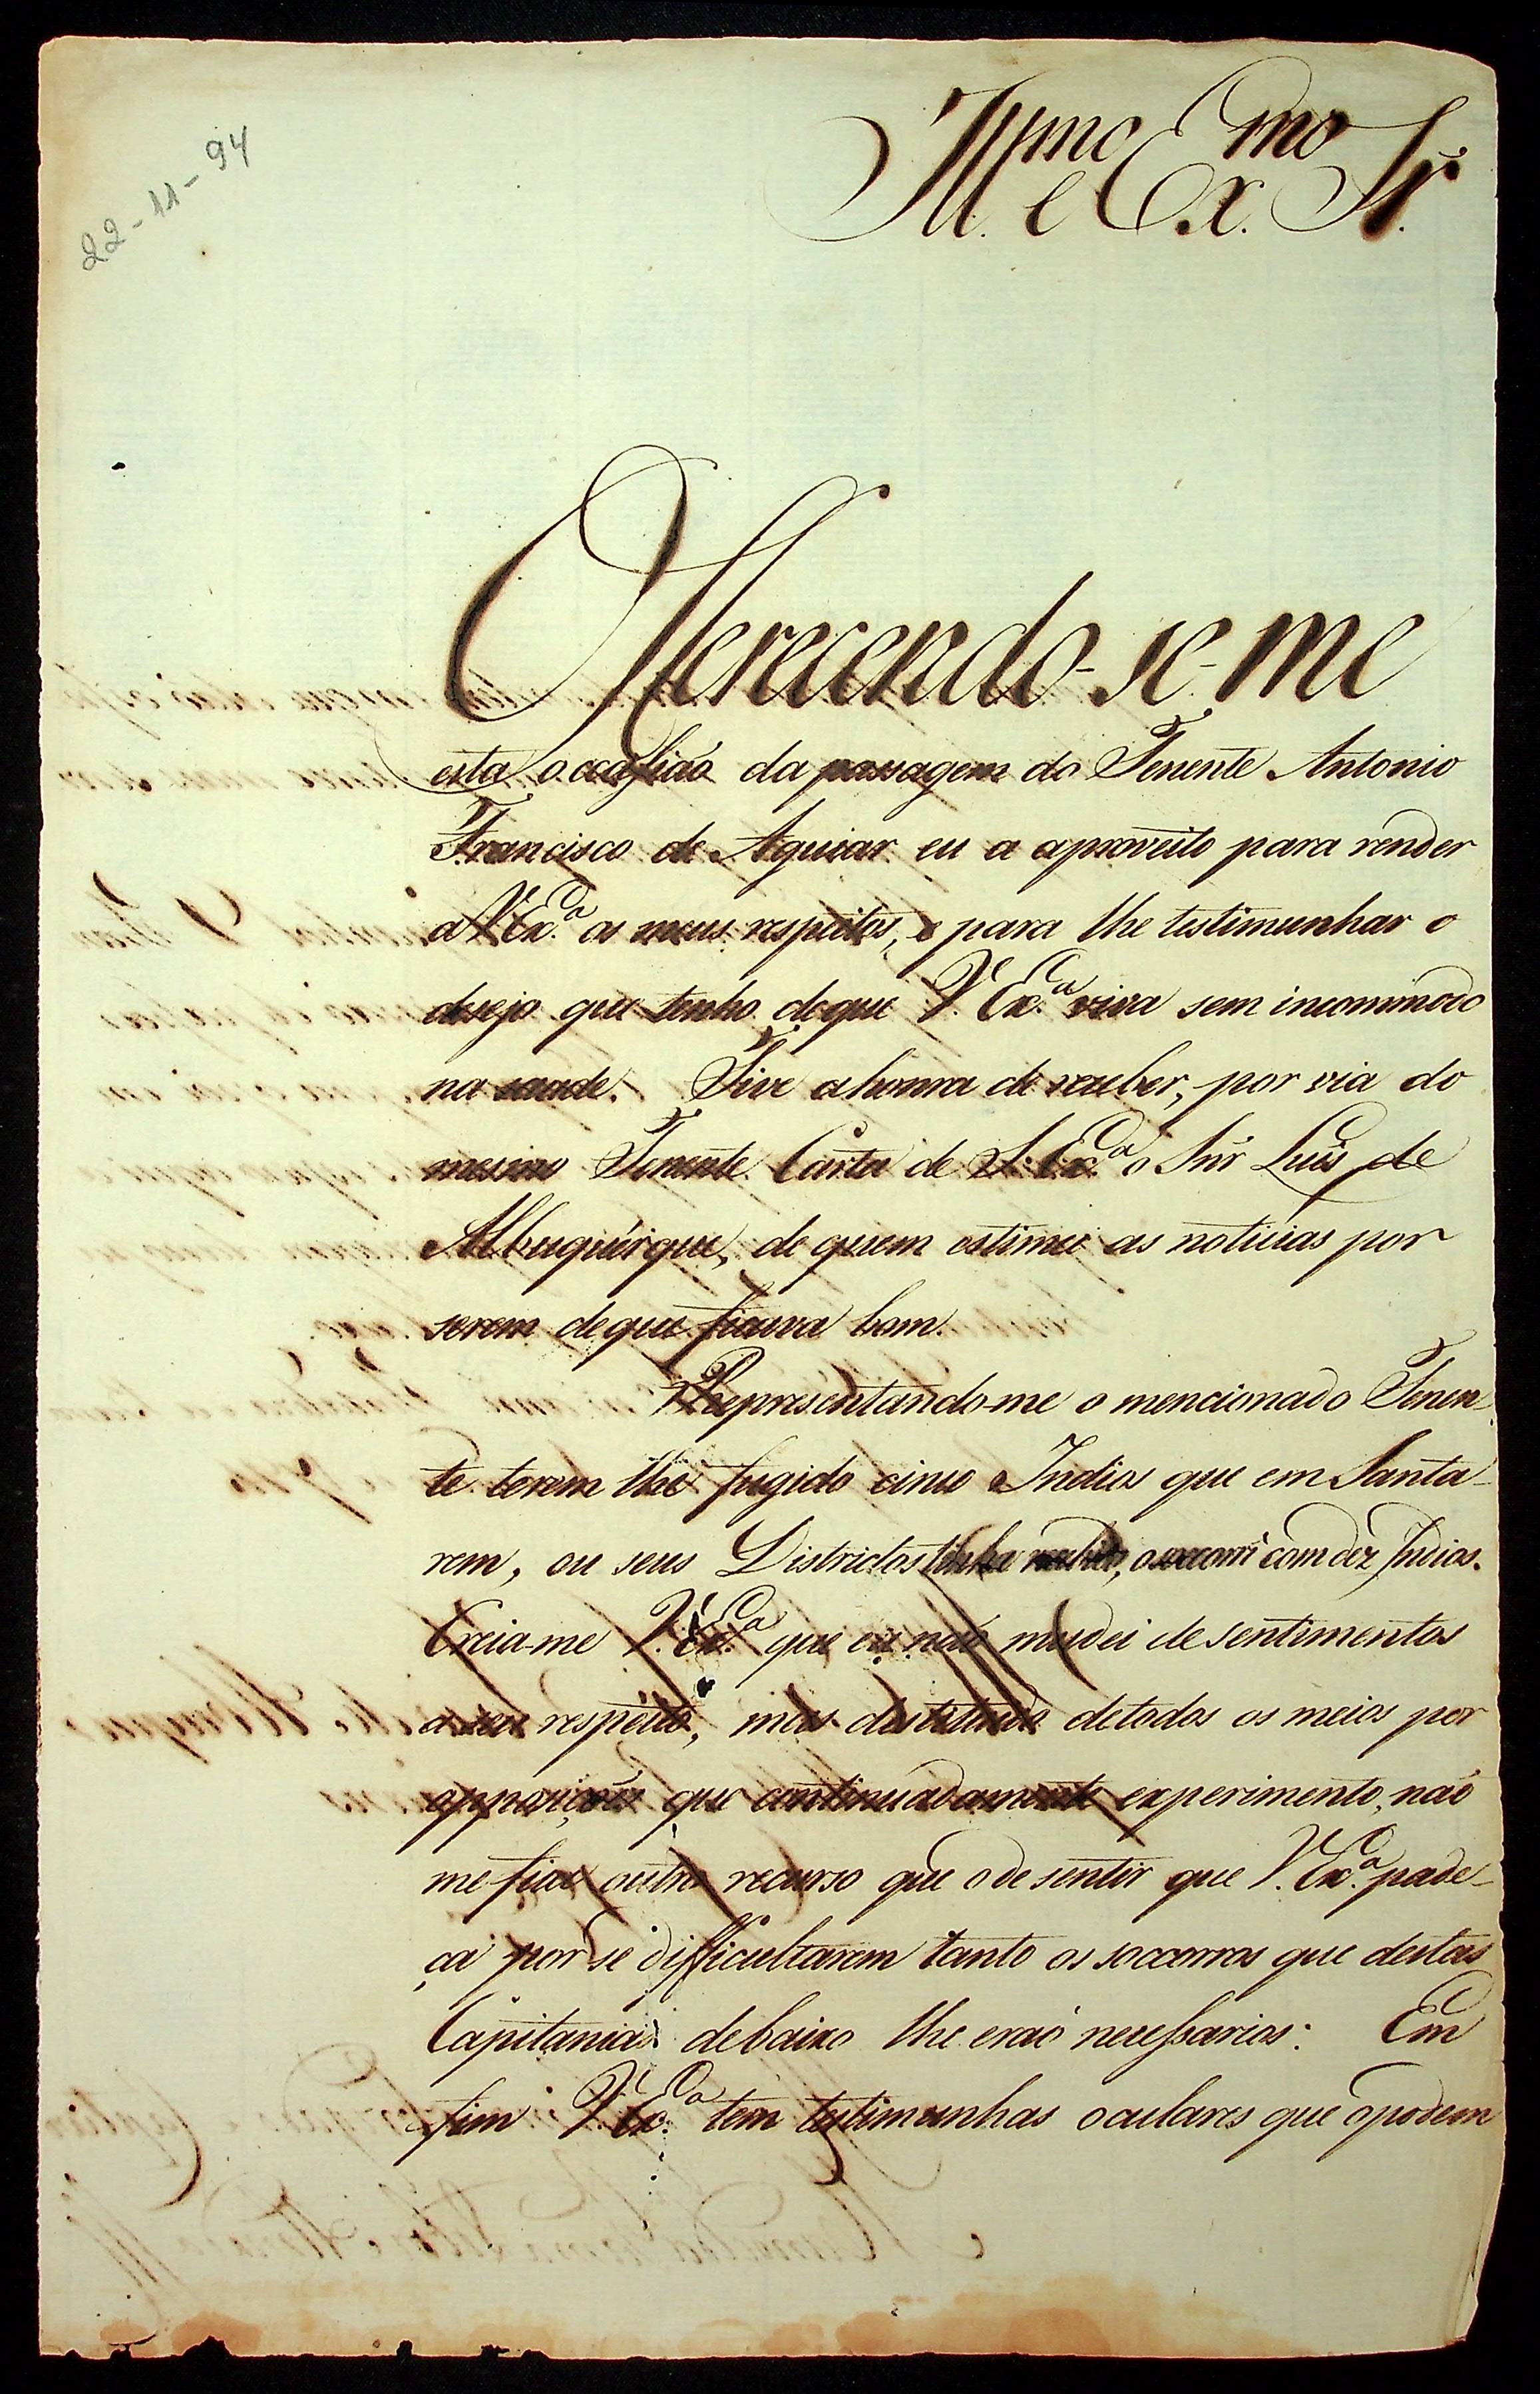 22-11-94
Ill.mo e Ex.mo Sr.
Offerecendo-se-me
esta occasiaõ da passagem do Tenente Antonio
Francisco de Aguiar eu a aproveito para render
a V.Ex.a os meus respeitos, e para lhe testimunhar o
desejo que tenho deque V. Ex.a viva sem incommodo
na saude. Tive ahonra de receber, por via do
mesmo Tenente Carta de S. Ex.a o Snr Luis de
Albuquérque, de quem estimei as noticias por
serem deque ficava bom.
Representando-me o mencionado Tenen-
te terem lhe fugido cinco Indios que em Santa-
rem, ou seus Districtos tinha recebido, osoccorri com dez Indios.
Creia-me V. Ex.a que eu naõ mudei de sentimentos
a seu respeito, mas destituido detodos os meios por
opposiçoẽs que continuadamente experimento, naõ
me fica outro recurso que o de sentir que V. Ex.a pade-
ça por se difficultarem tanto os soccorros que destas
Capitanias debaixo lhe eraõ necessarios: Em
fim V. Ex.a tem testimunhas oculares que opodem